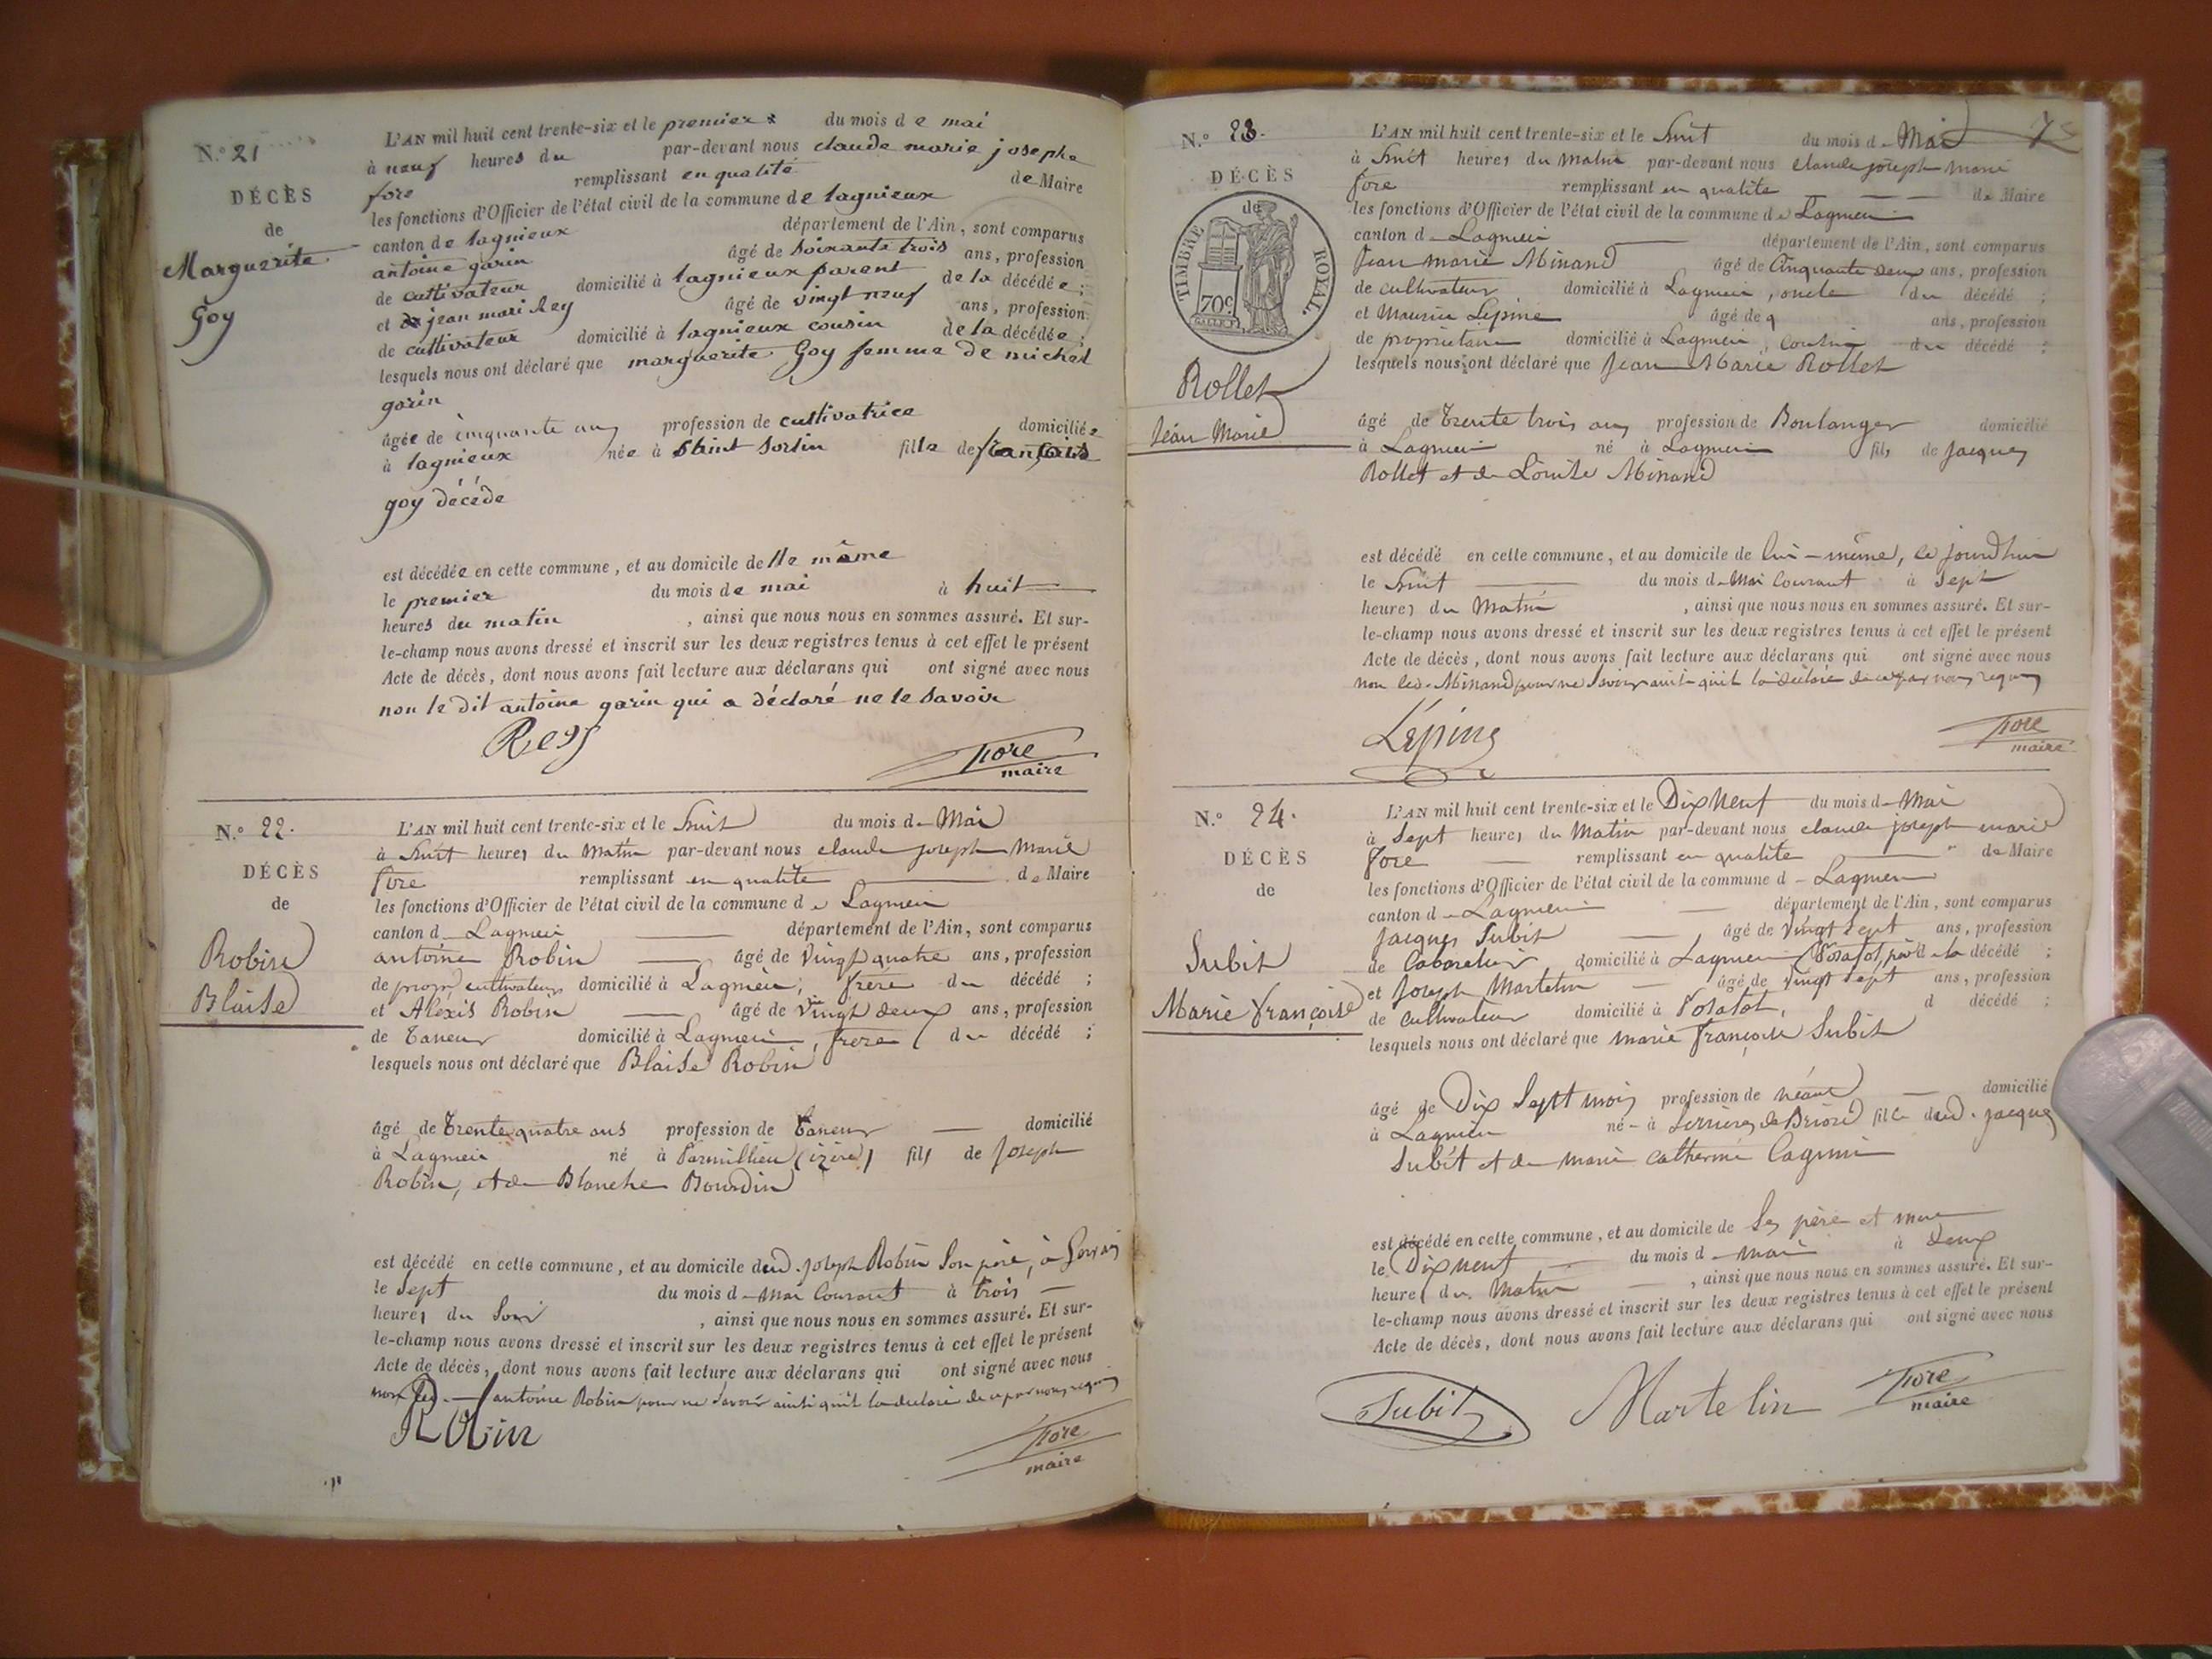 N.° 21
DÉCÈS
de
Marguerite
Goy
L'AN mil huit cent trente-six et le premier du mois de mai
à neuf heures du par-devant nous claude marie josephe
fore remplissant en qualité de Maire
les fonctions d'Officier de l'état civil de la commune de lagnieux
canton de lagnieux département de l'Ain, sont comparus
antoine garin âgé de soixante trois ans, profession
de cultivateur domicilié à lagnieux parent de la décédée ;
et jean mari Rey âgé de vingt neuf ans, profession
de cultivateur domicilié à lagnieux cousin de la décédée ;
lesquels nous ont déclaré que marguerite Goy femme de michel
garin
âgée de cinquante ans profession de cultivatrice domiciliée
à lagnieux née à Saint Sorlin fille de français
goy décéde
est décédée en cette commune, et au domicile de lle même
le premier du mois de mai à huit
heures du matin , ainsi que nous nous en sommes assuré. Et sur-
le-champ nous avons dressé et inscrit sur les deux registres tenus à cet effet le présent
Acte de décès, dont nous avons fait lecture aux déclarans qui ont signé avec nous
non le dit antoine garin qui a déclaré ne le savoir
Rey
fore
maire
N.° 22.
DÉCÈS
de
Robin
Blaise
L'AN mil huit cent trente-six et le huit du mois de Mai
à huit heures du Matin par-devant nous claude joseph Marie
fore remplissant en qualité de Maire
les fonctions d'Officier de l'état civil de la commune de Lagnieu
canton d Lagnieu département de l'Ain, sont comparus
antoine Robin âgé de Vingt quatre ans, profession
de cultivateur domicilié à Lagnieu, frère du décédé ;
et Alexis Robin âgé de Vingt deux ans, profession
de Taneur domicilié à Lagnieu, frere du décédé ;
lesquels nous ont déclaré que Blaise Robin
âgé de Trente quatre ans profession de Taneur domicilié
à Lagnieu né à Parmillieu (izère) fils de Joseph
Robin, et de Blanche Bourdin
est décédé en cette commune, et au domicile dud. joseph Robin Son père, à
le Sept du mois de mai Courant à trois
heures du Soir , ainsi que nous nous en sommes assuré. Et sur-
le-champ nous avons dressé et inscrit sur les deux registres tenus à cet effet le présent
Acte de décès, dont nous avons fait lecture aux déclarans qui ont signé avec nous
non led. antoine Robin pour ne Savoir ainsi qu'il la déclaré de ce par nous requis
Robin
fore
maire
7
N.° 23.
DÉCÈS
de
TIMBRE ROYAL
70c
Rollet
Jéan Marie
L'AN mil huit cent trente-six et le huit du mois de Mai
à huit heures du Matin par-devant nous claude joseph marie
fore remplissant en qualité de Maire
les fonctions d'Officier de l'état civil de la commune de Lagnieu
canton d Lagnieu département de l'Ain, sont comparus
Jean marie Minand âgé de Cinquante deux ans, profession
de cultivateur domicilié à Lagnieu, oncle du décédé ;
et Maurice Lépine âgé de ans, profession
de propriétaire domicilié à Lagnieu, Cousin du décédé ;
lesquels nous ont déclaré que Jean Marie Rollet
âgé de Trente trois ans profession de Boulanger domicilié
à Lagnieu né à Lagnieu fils de Jacques
Rollet et de Louise Minand
est décédé en cette commune, et au domicile de lui-même, ce jourd'hui
le huit du mois de Mai Courant à Sept
heures du Matin , ainsi que nous nous en sommes assuré. Et sur-
le-champ nous avons dressé et inscrit sur les deux registres tenus à cet effet le présent
Acte de décès, dont nous avons fait lecture aux déclarans qui ont signé avec nous
non led. Minand pour ne Savoir ainsi qu'il la déclaré de ce par nous requis
Lépine
fore
maire
N.° 24.
DÉCÈS
de
Subit
Marie françoise
L'AN mil huit cent trente-six et le Dix Neuf du mois de Mai
à Sept heures du Matin par-devant nous claude joseph marie
fore remplissant en qualité de Maire
les fonctions d'Officier de l'état civil de la commune d Lagnieu
canton d Lagnieu département de l'Ain, sont comparus
Jacques Subit âgé de Vingt Sept ans, profession
de Cabaretier domicilié à Lagnieu (Posafol) père de la décédé ;
et Joseph Martelin âgé de Vingt Sept ans, profession
de Cultivateur domicilié à Posafol, d décédé ;
lesquels nous ont déclaré que marie françoise Subit
âgé de Dix Sept mois profession de néant domicilié
à Lagnieu né à Serrières de Briord fille dud. jacques
Subit et de marie catherine
est décédé en cette commune, et au domicile de Ses père et mere
le Dix neuf du mois d mai à deux
heures du Matin , ainsi que nous nous en sommes assuré. Et sur-
le-champ nous avons dressé et inscrit sur les deux registres tenus à cet effet le présent
Acte de décès, dont nous avons fait lecture aux déclarans qui ont signé avec nous
Subit Martelin fore
maire